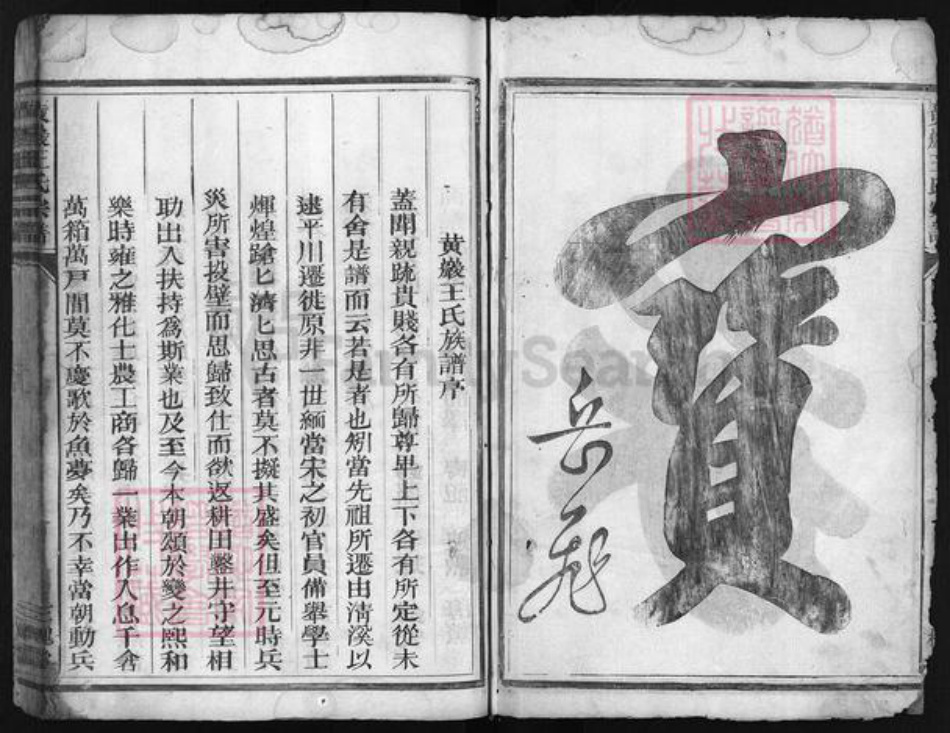 寶
岳飛
黄巖王氏族譜序
蓋聞親疏貴賤各有所歸尊畢上下各有所定從未
有舍是譜而云若是者也矧當先祖所遷由淸溪以
逮平川遷徙原非一世緬當宋之初官員備舉學士
煇煌蹌匕濟匕思古者莫不擬其盛矣但至元時兵
災所害投壁而思歸致仕而欲返耕田鑿井守望相
助出入扶持爲斯業也及至今本朝頌於變之熙和
樂時雍之雅化士農工商各歸一業出作入息千倉
萬箱萬戸間莫不慶歌於魚夢矣乃不幸當朝動兵